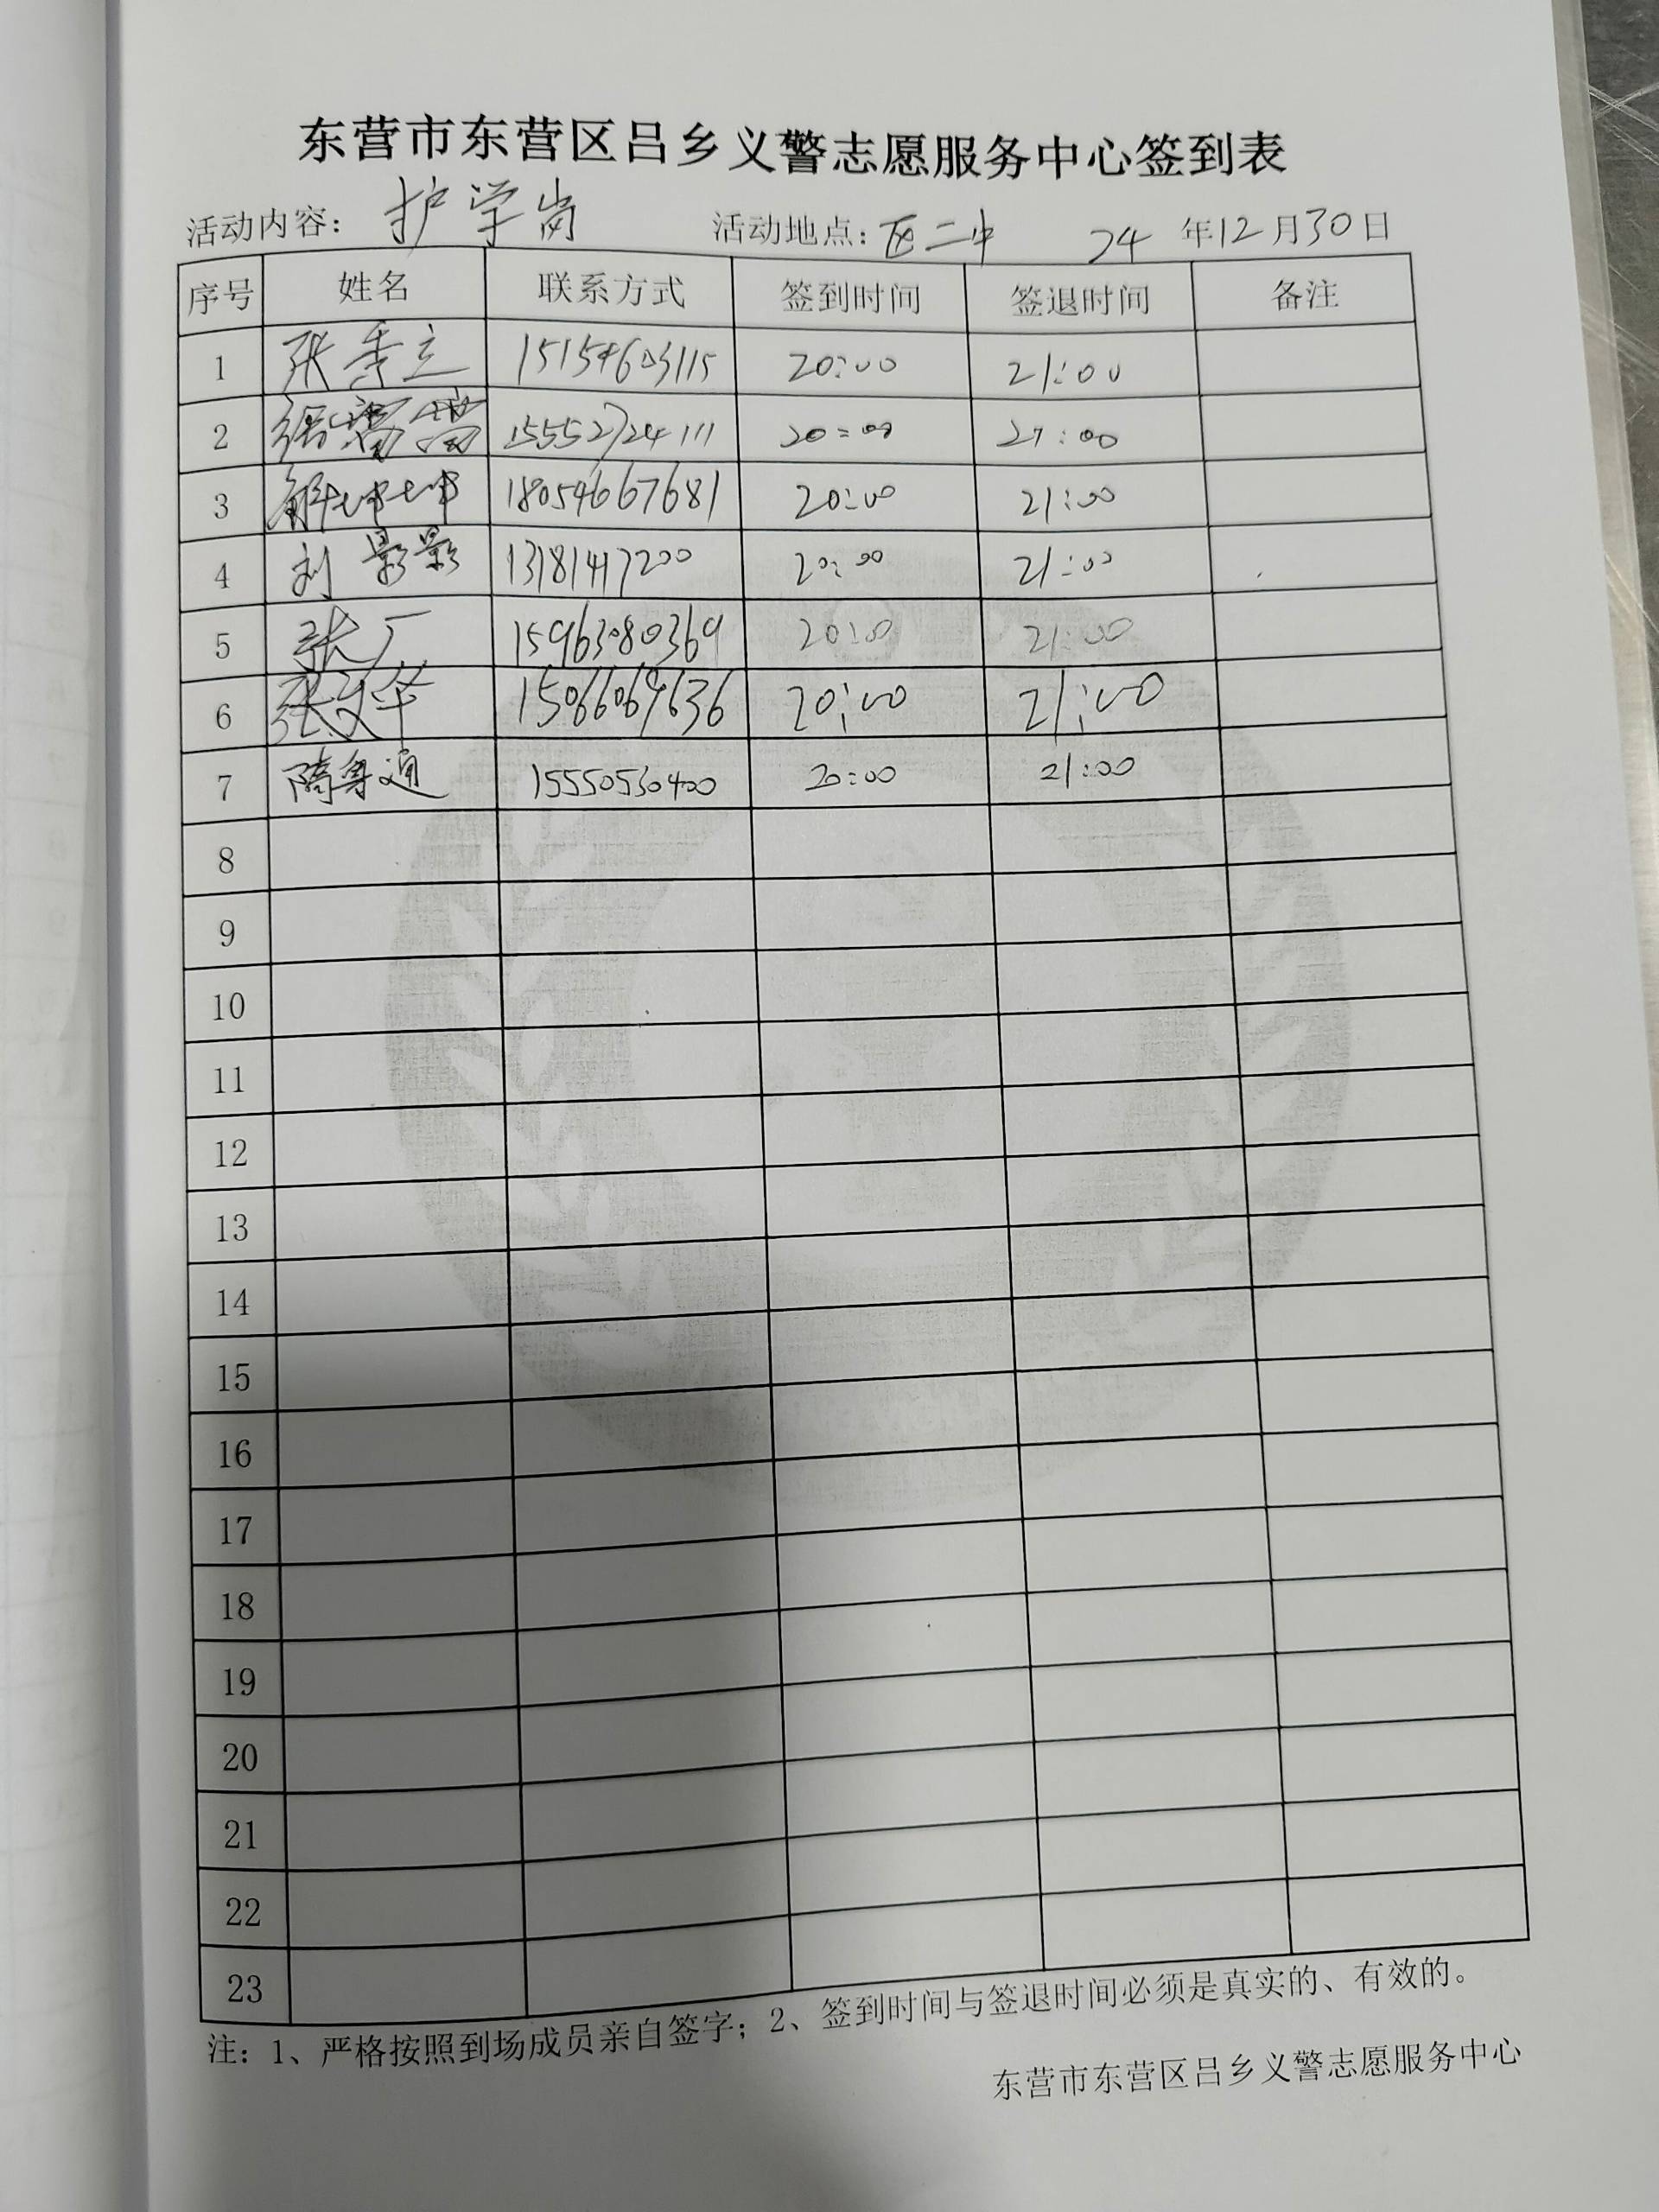 东营市东营区吕乡义警志愿服务中心签到表
活动内容: 护学岗 活动地点: 区二中 24 年12月30日
序号 姓名 联系方式 签到时间 签退时间 备注
1 张秀立 15154603115 20:00 21:00
2 15552724111 20:00 21:00
3 解坤坤 18054667681 20:00 21:00
4 刘影影 13181417200 20:00 21:00
5 张广 15963080369 20:00 21:00
6 张文华 15066069636 20:00 21:00
7 隋寿通 15550530400 20:00 21:00
8
9
10
11
12
13
14
15
16
17
18
19
20
21
22
23
注: 1、严格按照到场成员亲自签字; 2、签到时间与签退时间必须是真实的、有效的。
东营市东营区吕乡义警志愿服务中心